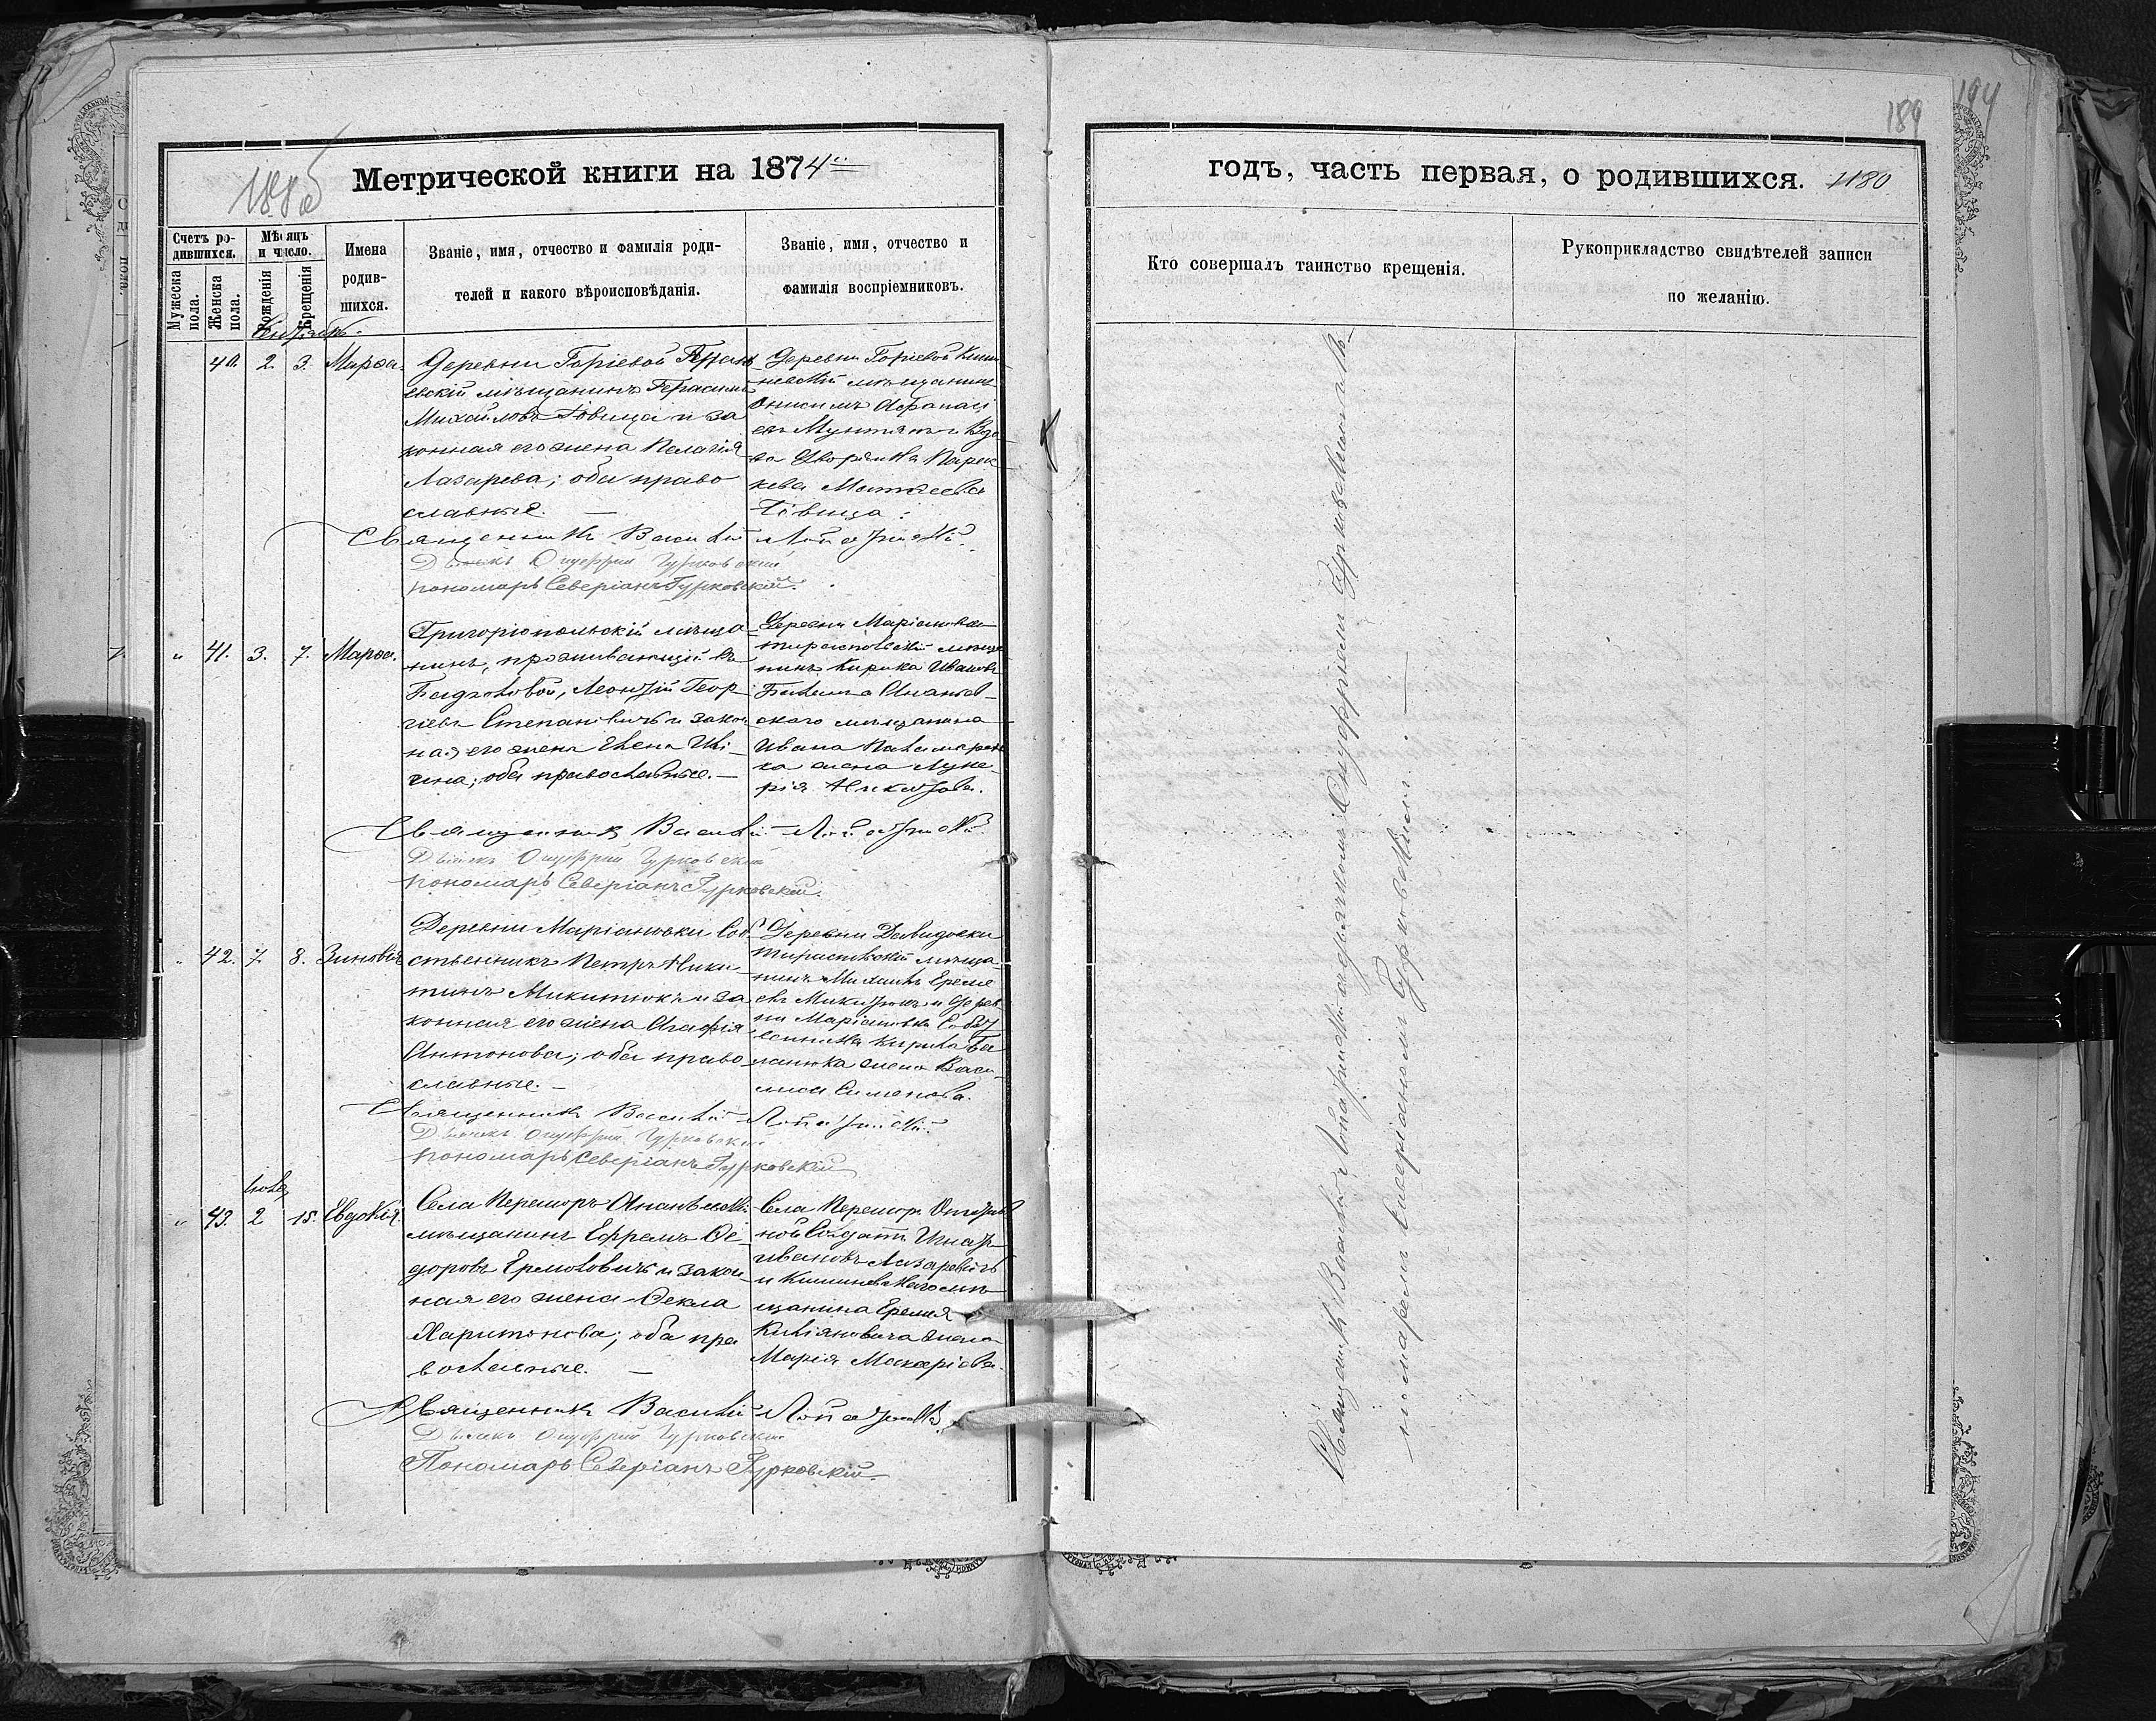 189
194
188 об
Метрической книги на 1874
годъ, часть первая, о родившихся. 1180
Счетъ ро-
дившихся.
Мужеска
пола.
Женска
пола.
Мѣсяцъ
и число.
Рожденія
Крещенія
Имена
родив-
шихся.
Званіе, имя, отчество и фамилія роди-
телей и какого вѣроисповѣданія.
Званіе, имя, отчество и
фамилія воспріемниковъ.
Кто совершалъ таинство крещенія.
Рукоприкладство свидѣтелей записи
по желанію.
40. 2. 3. Марѳа.
Деревни Горіевой
мѣщанинъ Герасимъ
Михайловъ Товица и за
конная его жена Пелагія
Лазарева; оба право
славные. —
Деревни Горіевой Киши
невскій мѣщанинъ
Онисимъ Аѳанасі
евъ Мунтянъ и Вдо
ва Дворянка Парас
кева Матѳеева
Товица.
Священникъ Василій Лопатинскій.
Дьячекъ Онуфрій Гурковскій
пономарь Северіанъ Гурковскій.
" 41. 3. 7. Марѳа.
Григоріопольскій мѣща
нинъ, проживающій въ
Леонтій Геор
гіевъ Степановичъ и закон
ная его жена Елена
оба православные. —
Деревни Маріановки
тираспольскій мѣща
нинъ Кирика Ивановъ
Ананьев
скаго мѣщанина
Ивана Паламарен
ка жена Луке
рія Никитова.
Священникъ Василій Лопатинскій
Дьячекъ Онуфрій Гурковскій
пономарь Северіанъ Гурковскій.
" 42. 7. 8. Зиновія
Деревни Маріановки Соб
ственникъ Петръ Ники
тинъ Микитюкъ и за
конная его жена Агафія
Антонова; оба право
славные. —
Деревни Давидовки
тираспольскій мѣща
нинъ Михаилъ Ереме
евъ Микитюкъ и дерев
ни Маріановки Собст
венника Кирила Ба
ланюка жена Васи
лиса Симонова.
Священникъ Василій Лопатинскій
Дьячекъ Онуфрій Гурковскій
пономарь Северіанъ Гурковскій
" 43. 2 15. Евдокія.
Села Переморъ Ананьевскій
мѣщанинъ Ефремъ Ѳе
доровъ Ермоловичъ и закон
ная его жена Ѳекла
Харитонова; оба пра
вославные. —
Села Переморъ Отстав
ной Солдатъ Игнатъ
Ивановъ Лазаревичъ
и Кишиневскаго мѣ
щанина Еремея
Килiяновича жена
Марія Макаріева.
Священникъ Василій Лопатинскій
Дьячекъ Онуфрій Гурковскій
Пономарь Северіанъ Гурковскій.
Священникъ Василій Лопатинскій съ дьячкомъ Онуфріемъ Гурковскимъ и По-
номаремъ Северіаномъ Гурковскимъ. —